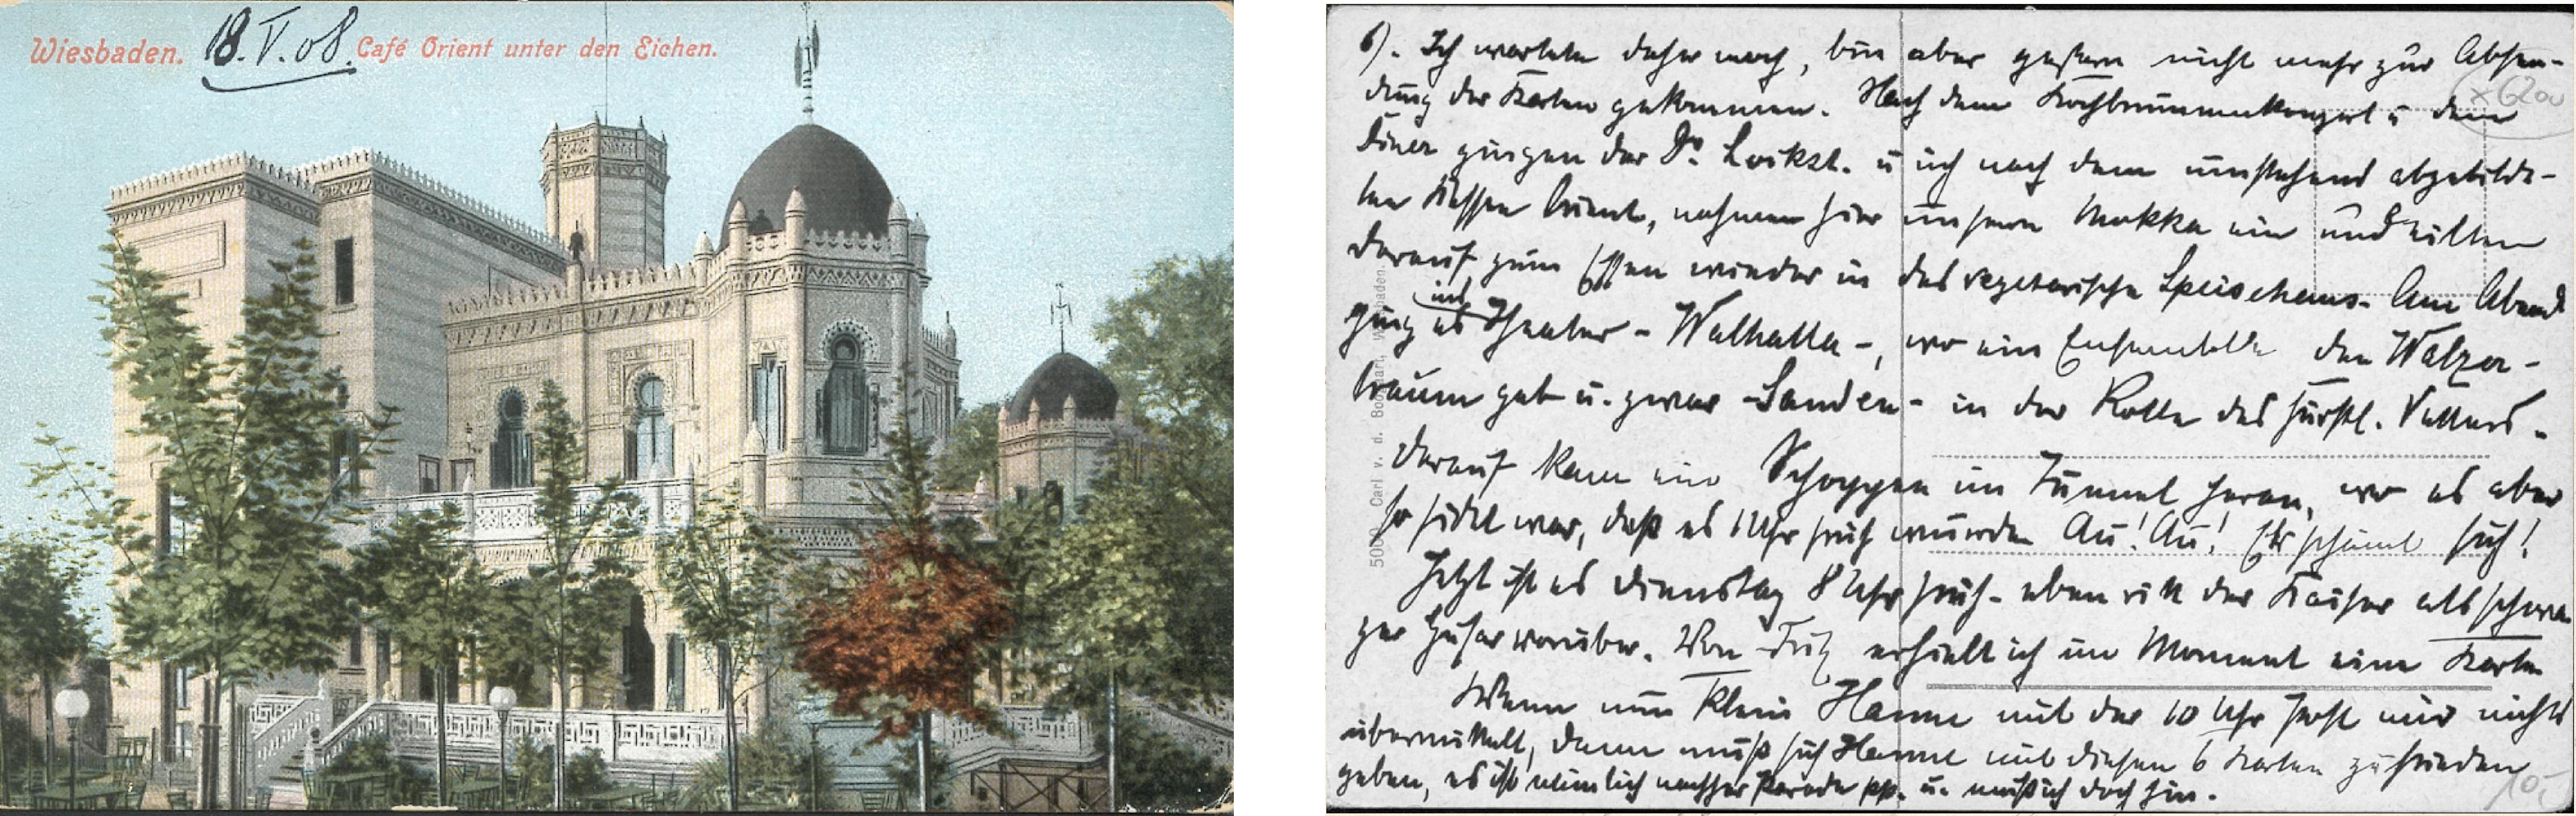 Wiesbaden. 18.V.08. Café Orient unter den Eichen.
6). Ich wartete daher noch, bin aber gestern nicht mehr zur Absen-
dung der Karten gekommen. Nach dem Kochbrunnenkonzert u dem
Diner gingen der Dr. u ich nach dem umstehend abgebilde-
ten Kaffee Orient, nahmen hier unseren Mokka ein und eilten
darauf zum Essen wieder in das vegetarische Speisehaus. Am Abend
ging es ins Theater - Walhalla -, wo ein Ensemble den Walzer-
traum gab u. zwar - Sanden - in der Rolle des fürstl. Vetters.
Darauf kam ein Schoppen im Tunnel heran, wo es aber
so fidel war, daß es 1 Uhr früh wurde. Au! Au! Ihr schämt sich!
Jetzt ist es Dienstag 8 Uhr früh - eben ritt der Kaiser als schwar-
zer Husar vorüber. Von Fritz erhielt ich im Moment eine Karte
Wenn nun klein Hanne mit der 10 Uhr Post mir nichts
übermittelt, dann muß sich Hanne mit diesen 6 Karten zufrieden
geben, es ist nämlich nachher Parade pp. u. muß ich doch hin.
x6200
10,-
5000 Carl v. d. Boogaart, Wiesbaden.